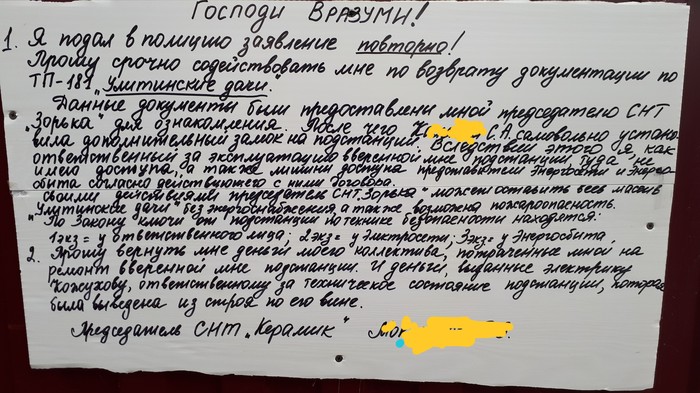 Господи Вразуми!
1. Я подал в полицию заявление повторно!
Прошу срочно содействовать мне по возврату документации по
ТП-181 "Улитинские дачи."
Данные документы были предоставлены мной председателю СНТ
"Зорька" для ознакомления. После чего С.А. самовольно устано
вила дополнительный замок на подстанции. Вследствеи этого я, как
ответственный за эксплуатацию вверенной мне подстанции, туда не
имею доступа, а также лишены доступа представители Энергосети и Энерго
сбыта согласно действующего с ними договора.
Своими действиями председатель СНТ "Зорька" может оставить весь массив
"Улитинские дачи" без энергоснабжения, а также возможна пожароопасность.
По Закону ключи от подстанции по технике безопасности находятся:
1экз = у ответственного лица; 2экз = у Элктросети; 3экз = у Энергосбыта,
2. Прошу вернуть мне деньги моего коллектива, потраченные мной на
ремонт вверенной мне подстанции. И деньги, выданные электрику
Кожухову, ответственному за техническое состояние подстанции, которая
была выведена из строя по его вине.
Председатель СНТ "Керамик"